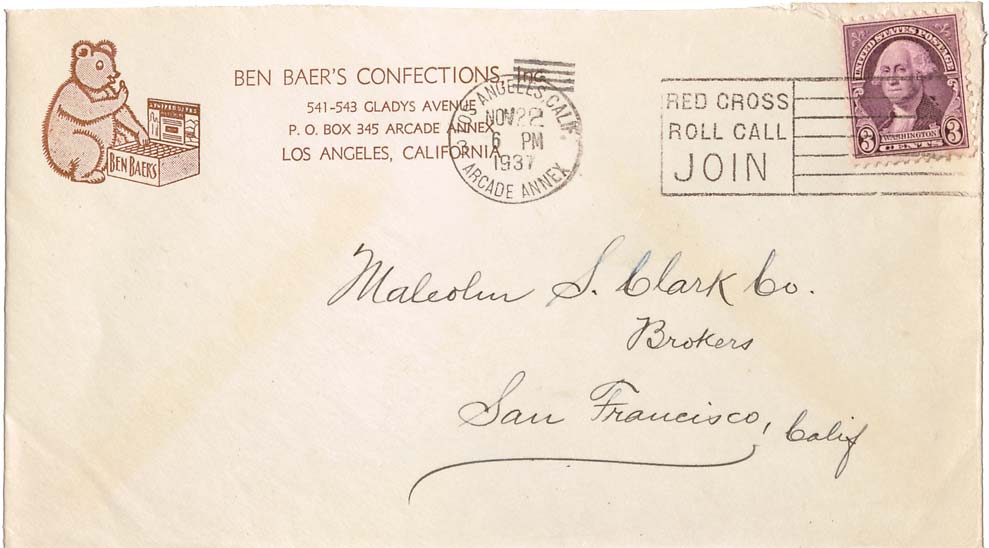 BEN BAER'S CONFECTIONS, Inc.
541-543 GLADYS AVENUE
P. O. BOX 345 ARCADE ANNEX
LOS ANGELES, CALIFORNIA
BEN BAER'S
LOS ANGELES, CALIF.
NOV 22
6 PM
1937
ARCADE ANNEX
RED CROSS
ROLL CALL
JOIN
UNITED STATES POSTAGE
WASHINGTON
3 CENTS 3
Malcolm S. Clark Co.
Brokers
San Francisco, Calif